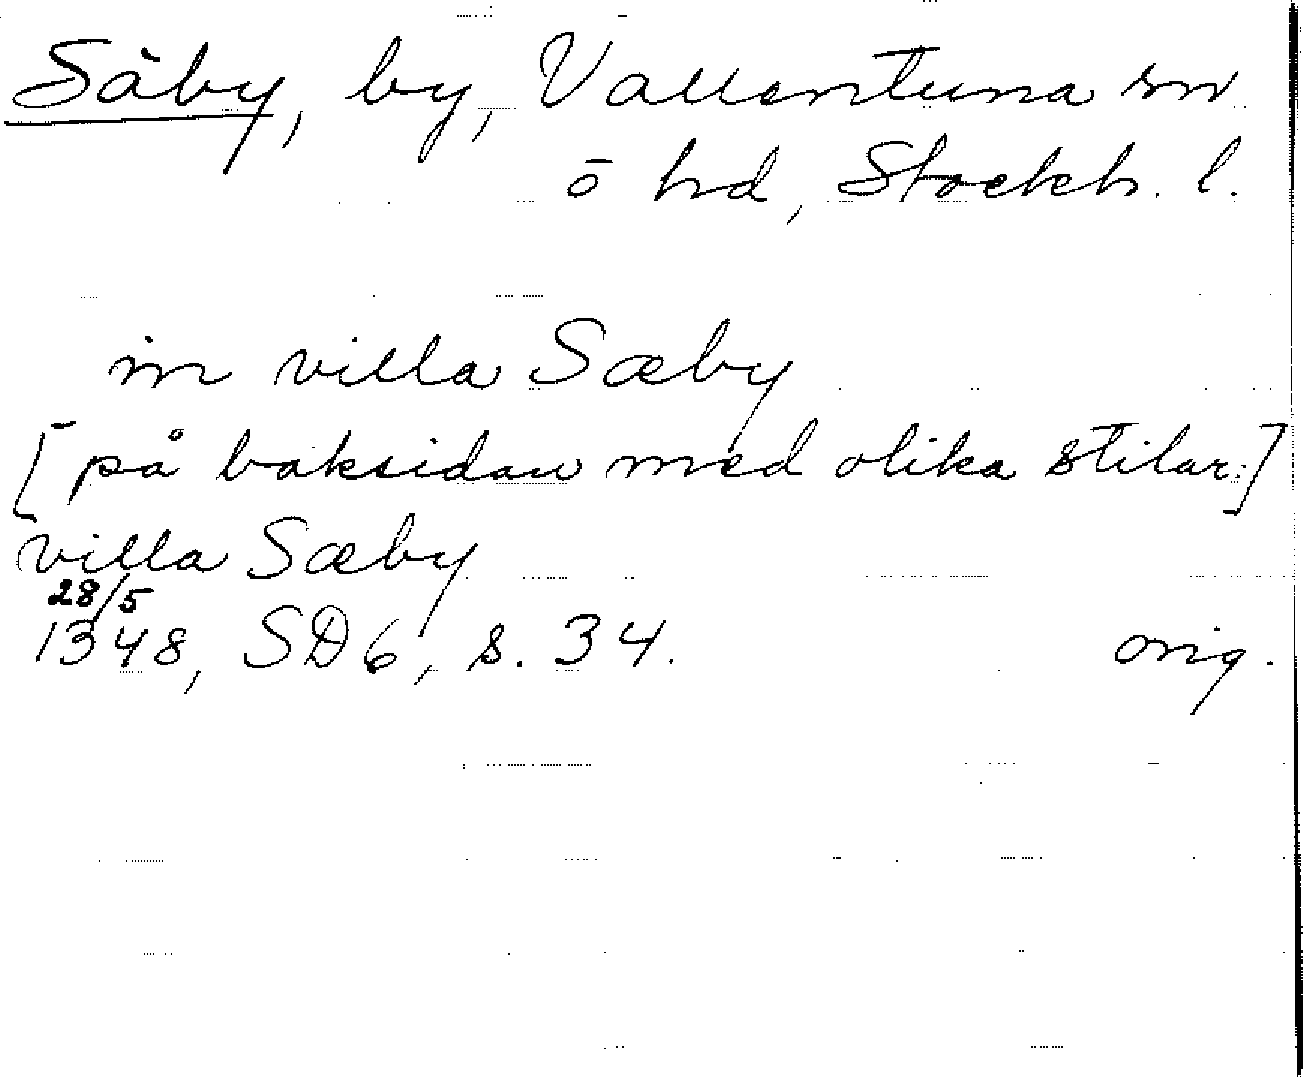 Säby, by, Vallentuna sn
o hd, Stockh. l.
in villa Sæby
[på baksidan med olika stilar:]
villa Sæby
28/5
1348, SD6, s. 34. orig.